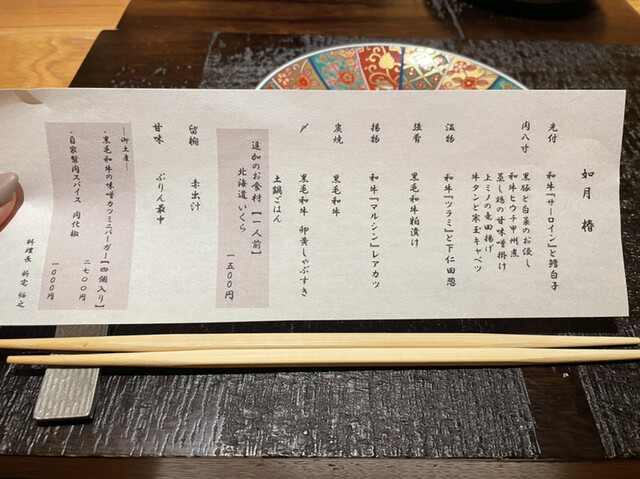 如月 椿
先付 和牛『サーロイン』と鱈白子
肉八寸 黒豚と白菜のお浸し
和牛ヒウチ甲州煮
蒸し鶏の甘味噌掛け
上ミノの竜田揚げ
牛タンと寒玉キャベツ
温物 和牛『ツラミ』と下仁田葱
強肴 黒毛和牛粕漬け
揚物 和牛『マルシン』レアカツ
炭焼 黒毛和牛
〆 黒毛和牛 卵黄しゃぶすき
土鍋ごはん
追加のお食材【一人前】
北海道いくら 一五〇〇円
留椀 赤出汁
甘味 ぷりん最中
―御土産―
・黒毛和牛の味噌カツミニバーガー【四個入り】
二七〇〇円
・自家製肉スパイス 肉化椒
一〇〇〇円
料理長 新宅 裕之